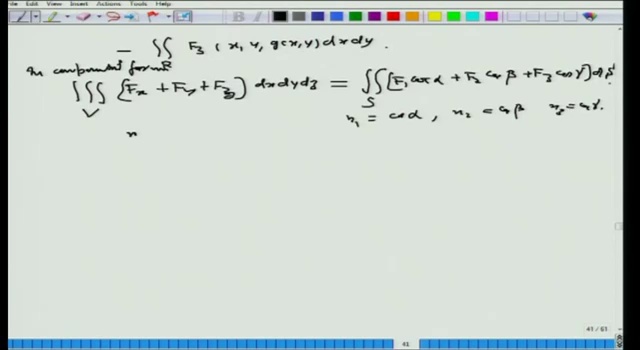 File Edit View Insert Actions Tools Help
− ∬_R F₃(x, y, g(x,y)) dx dy .
In component form
∭_V [Fx + Fy + Fz] dx dy dz = ∬_S [F₁ cos α + F₂ cos β + F₃ cos γ] ds
n₁ = cos α , n₂ = cos β n₃ = cos γ.
n
41 / 61
41